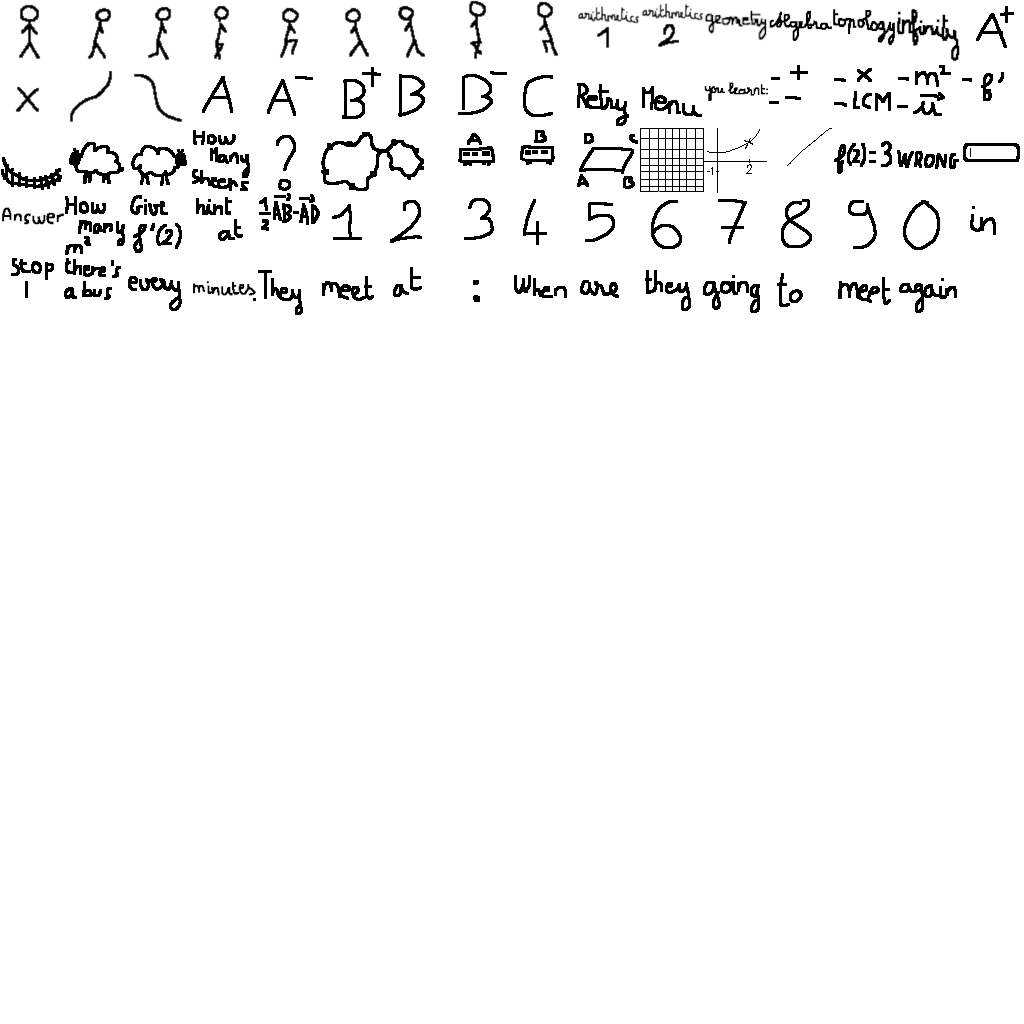 arithmetics 1 arithmetics 2 geometry algebra topology infinity A+
× A A- B+ B B- C Retry Menu you learnt: - + - - - × - LCM - m² - u⃗ - f'
How Many Sheeps ? A B D C A B -1 2 f(2)=3 WRONG
Answer How many m² Give f'(2) hint at 1/2 AB⃗-AD⃗ 1 2 3 4 5 6 7 8 9 0 in
Stop 1 there's a bus every minutes. They meet at : When are they going to meet again